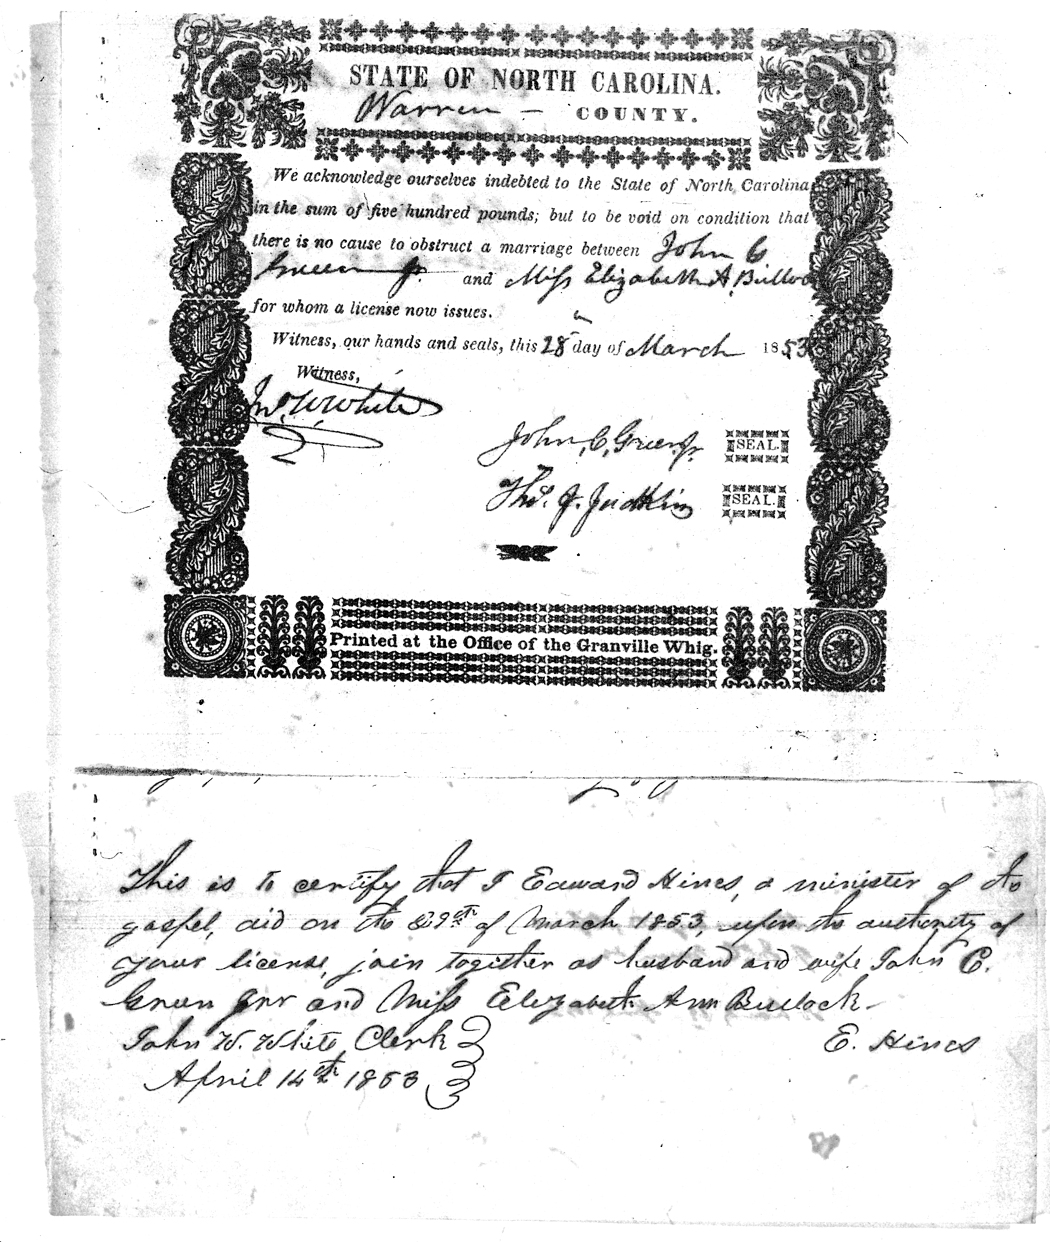 STATE OF NORTH CAROLINA.
Warren - COUNTY.
We acknowledge ourselves indebted to the State of North Carolina
in the sum of five hundred pounds; but to be void on condition that
there is no cause to obstruct a marriage between John C
Green Jr. and Miss Elizabeth A, Bulloc
for whom a license now issues.
Witness, our hands and seals, this 28 day of March 1853
Witness,
Jno. W White
John, C, Green, Jr SEAL.
Thos. J. Judkins SEAL.
Printed at the Office of the Granville Whig.
This is to certify that I Edward Hines, a minister of the
gospel, did on the 29th of March 1853, upon the authority of
your license, join together as husband and wife John C.
Green Jnr and Miss Elizabeth Ann Bullock
John W. White Clerk E. Hines
April 14th 1853